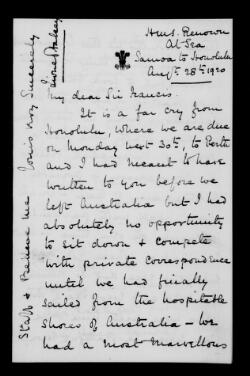 H.M.S. Renown
At Sea
Samoa to Honolulu
Aug. 28th 1920
My dear Sir Francis.
It is a far cry from
Honolulu, where we are due
on Monday next 30th, to Perth
and I had meant to have
written to you before we
left Australia but I had
absolutely no opportunity
to sit down & compete
with private correspondence
until we had finally
sailed from the hospitable
shores of Australia - We
had a most marvellous
Staff & Believe me Yours very Sincerely